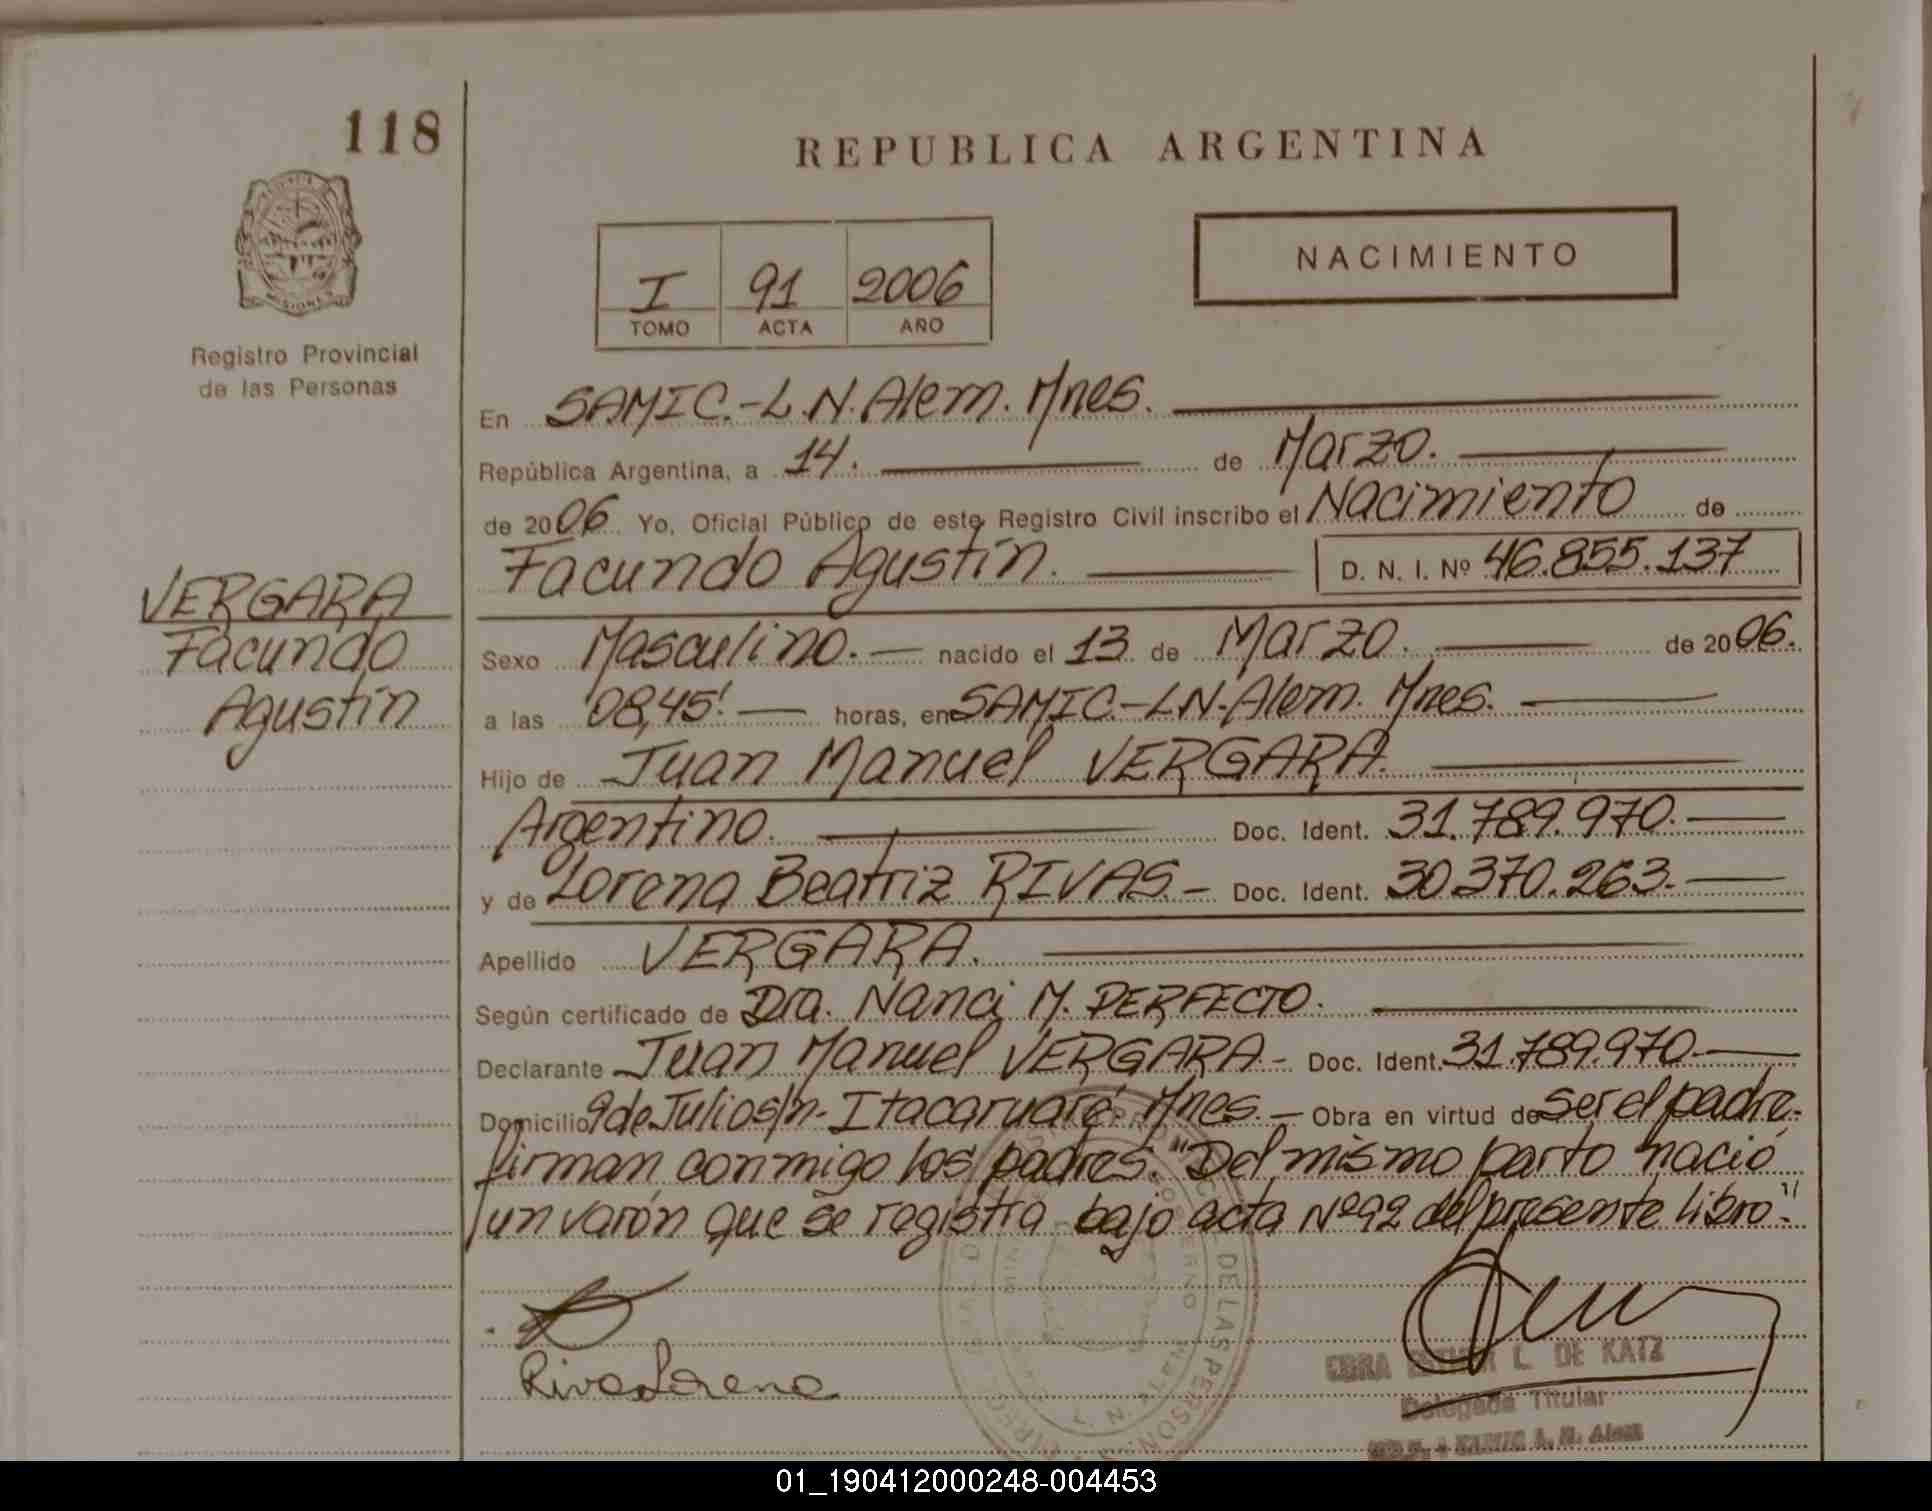 118
REPUBLICA ARGENTINA
NACIMIENTO
I 91 2006
TOMO ACTA AÑO
Registro Provincial
de las Personas
En SAMIC.-L.N.Alem. Mnes.
República Argentina, a 14. de Marzo.
de 2006 Yo, Oficial Público de este Registro Civil inscribo el Nacimiento de
Facundo Agustín. D. N. I. Nº 46.855.137
VERGARA
Facundo
Agustín
Sexo Masculino.- nacido el 13 de Marzo. de 2006.
a las 08,45' horas, en SAMIC.-L.N.-Alem. Mnes.
Hijo de Juan Manuel VERGARA.
Argentino. Doc. Ident. 31.789.970.
y de Lorena Beatriz RIVAS.- Doc. Ident. 30.370.263.
Apellido VERGARA.
Según certificado de Dra. Nanci M. PERFECTO.
Declarante Juan Manuel VERGARA.- Doc. Ident. 31.789.970.
Domicilio 9 de Julio s/n.- Itacaruaré, Mnes.- Obra en virtud de ser el padre.
firman conmigo los padres. "Del mismo parto nació
un varón que se registra bajo acta Nº 92 del presente libro".
Rivas Lorena
L. DE KATZ
Delegada Titular
L. N. Alem
DE LAS PERSON
01_190412000248-004453